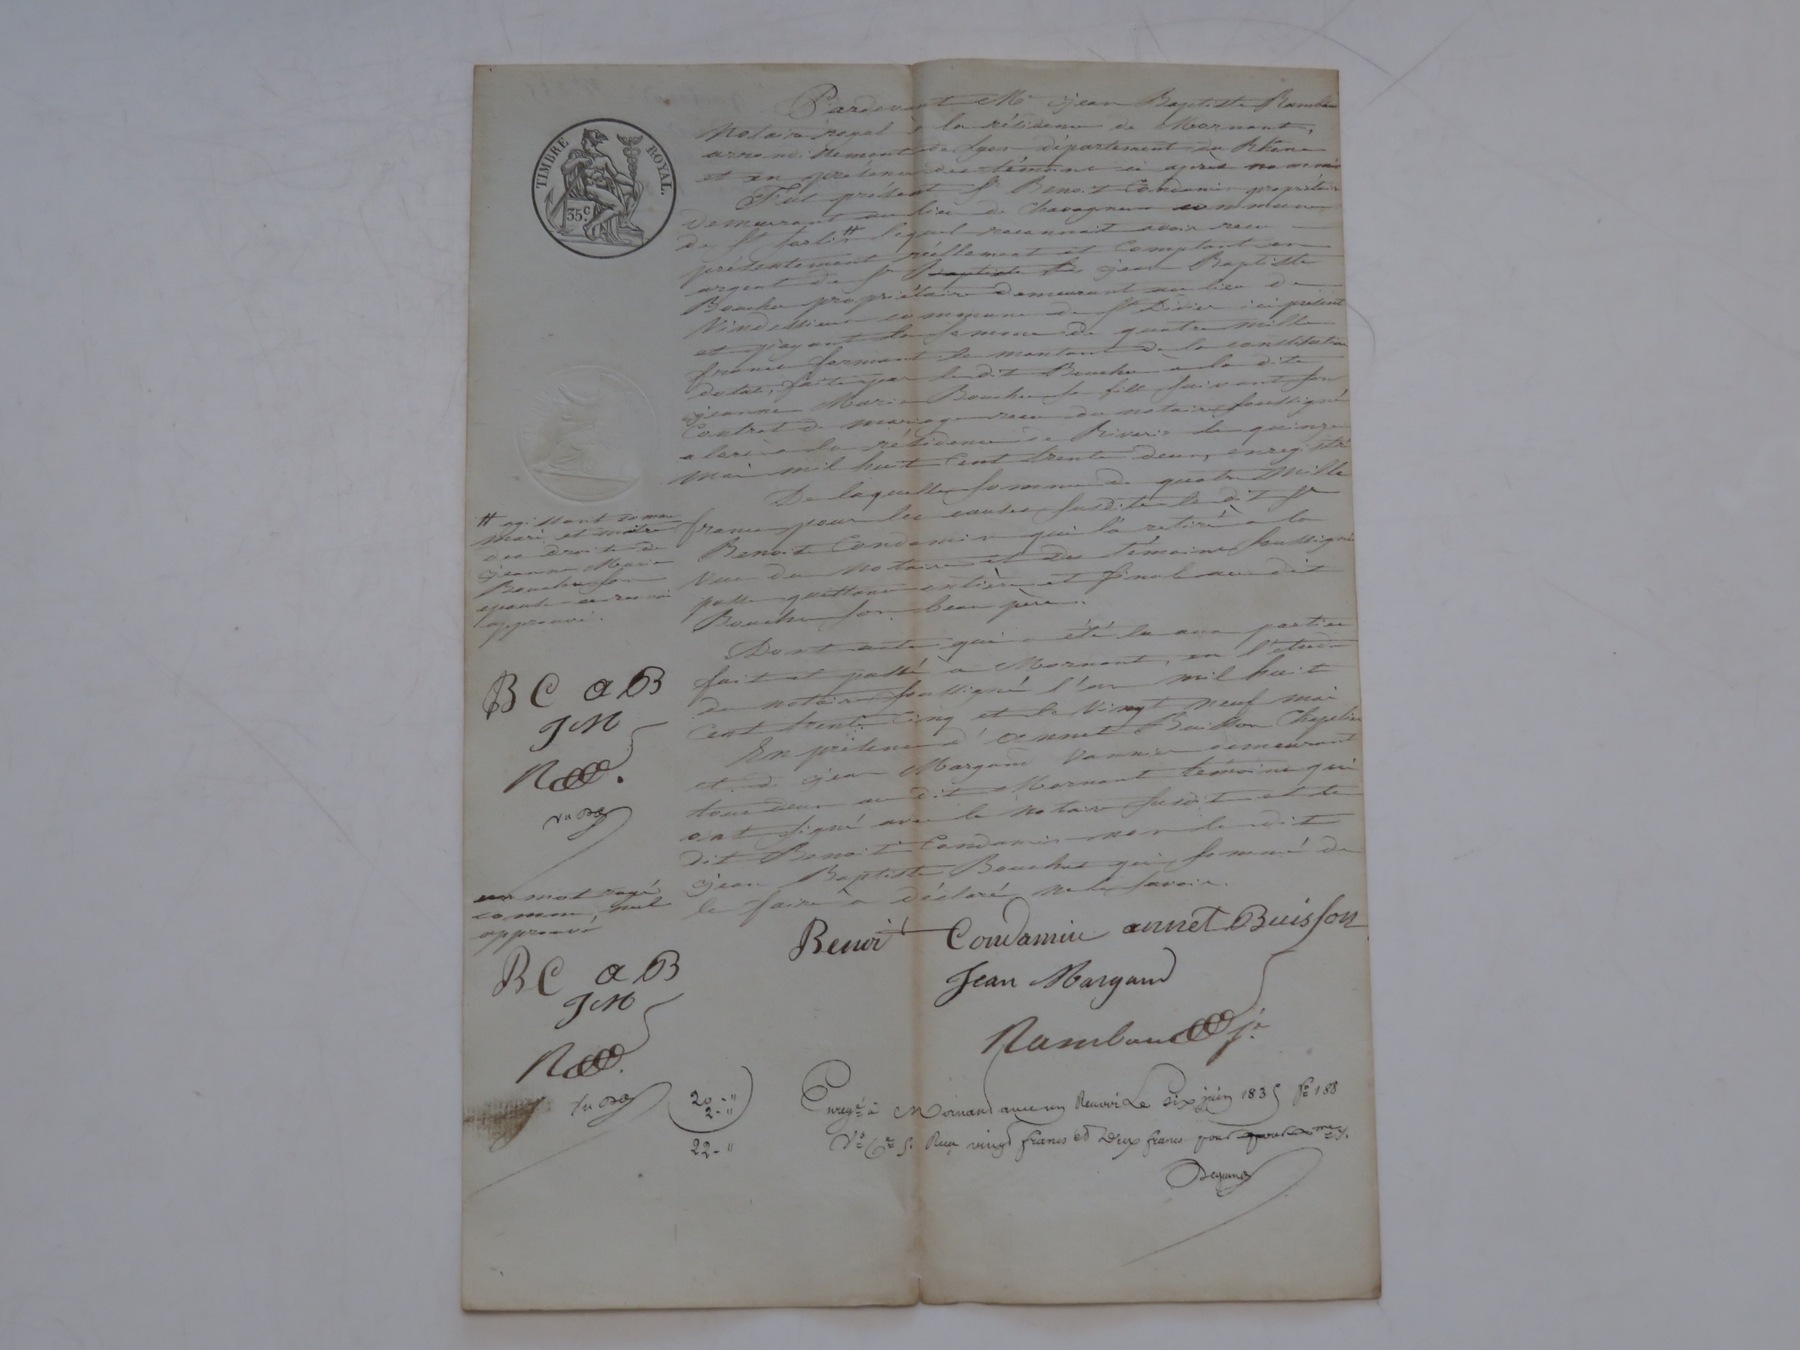 TIMBRE ROYAL.
35 c.
Pardevant Me Jean Baptiste Rambau
Notaire royal à la résidence de Mornant,
arrondissement de Lyon département du Rhône
et en présence des témoins ci après nommés
Fut présent Sr Benoit Condamin propriétaire
demeurant au lieu de Chavagneux commune
de St Sorlin # lequel reconnait avoir reçu
présentement réellement et comptant en
argent de Sr Baptiste Jean Baptiste
Bouchu propriétaire demeurant au lieu de
commune de St Didier ici présent
et payant la somme de quatre mille
francs formant le montant de la constitution
dotale, faite par le dit Bouchu à la dite
Jeanne Marie Bouchu sa fille suivant son
Contrat de mariage reçu du notaire soussigné
alors à la résidence de Riverie le quinze
mai mil huit cent trente deux, enregistré
De laquelle somme de quatre mille
francs pour les causes susdites le dit Sr
Benoit Condamin qui l'a retiré à la
vue du Notaire et des témoins soussignés
passe quittance entière et finale au dit
Bouchu son beau père.
Dont acte qui a été lu aux parties
fait et passé à Mornant, en l'étude
du notaire soussigné l'an mil huit
cent trente cinq et le vingt neuf mai
En présence d'Annet Buisson Chapelier
et de Jean Margand vannier demeurant
tous deux au dit Mornant témoins qui
ont signé avec le notaire susdit et le
dit Benoit Condamin non le dit
Jean Baptiste Bouchu qui sommé de
le faire a déclaré ne le savoir.
# agissant comme
mari et maitre
des droits de
Jeanne Marie
Bouchu son
épouse ce renvoi
approuvé.
B C a B
J M
R
un mot rayé
comme nul
approuvé
B C a B
J M
R
Benoit Condamin annet Buisson
Jean Margand
Rambaud Je
20 - "
2 - "
22 - "
Enregé à Mornant avec un Renvoi Le six juin 1835 fo 188
Vo Ce 5. Reçu vingt francs et Deux francs pour